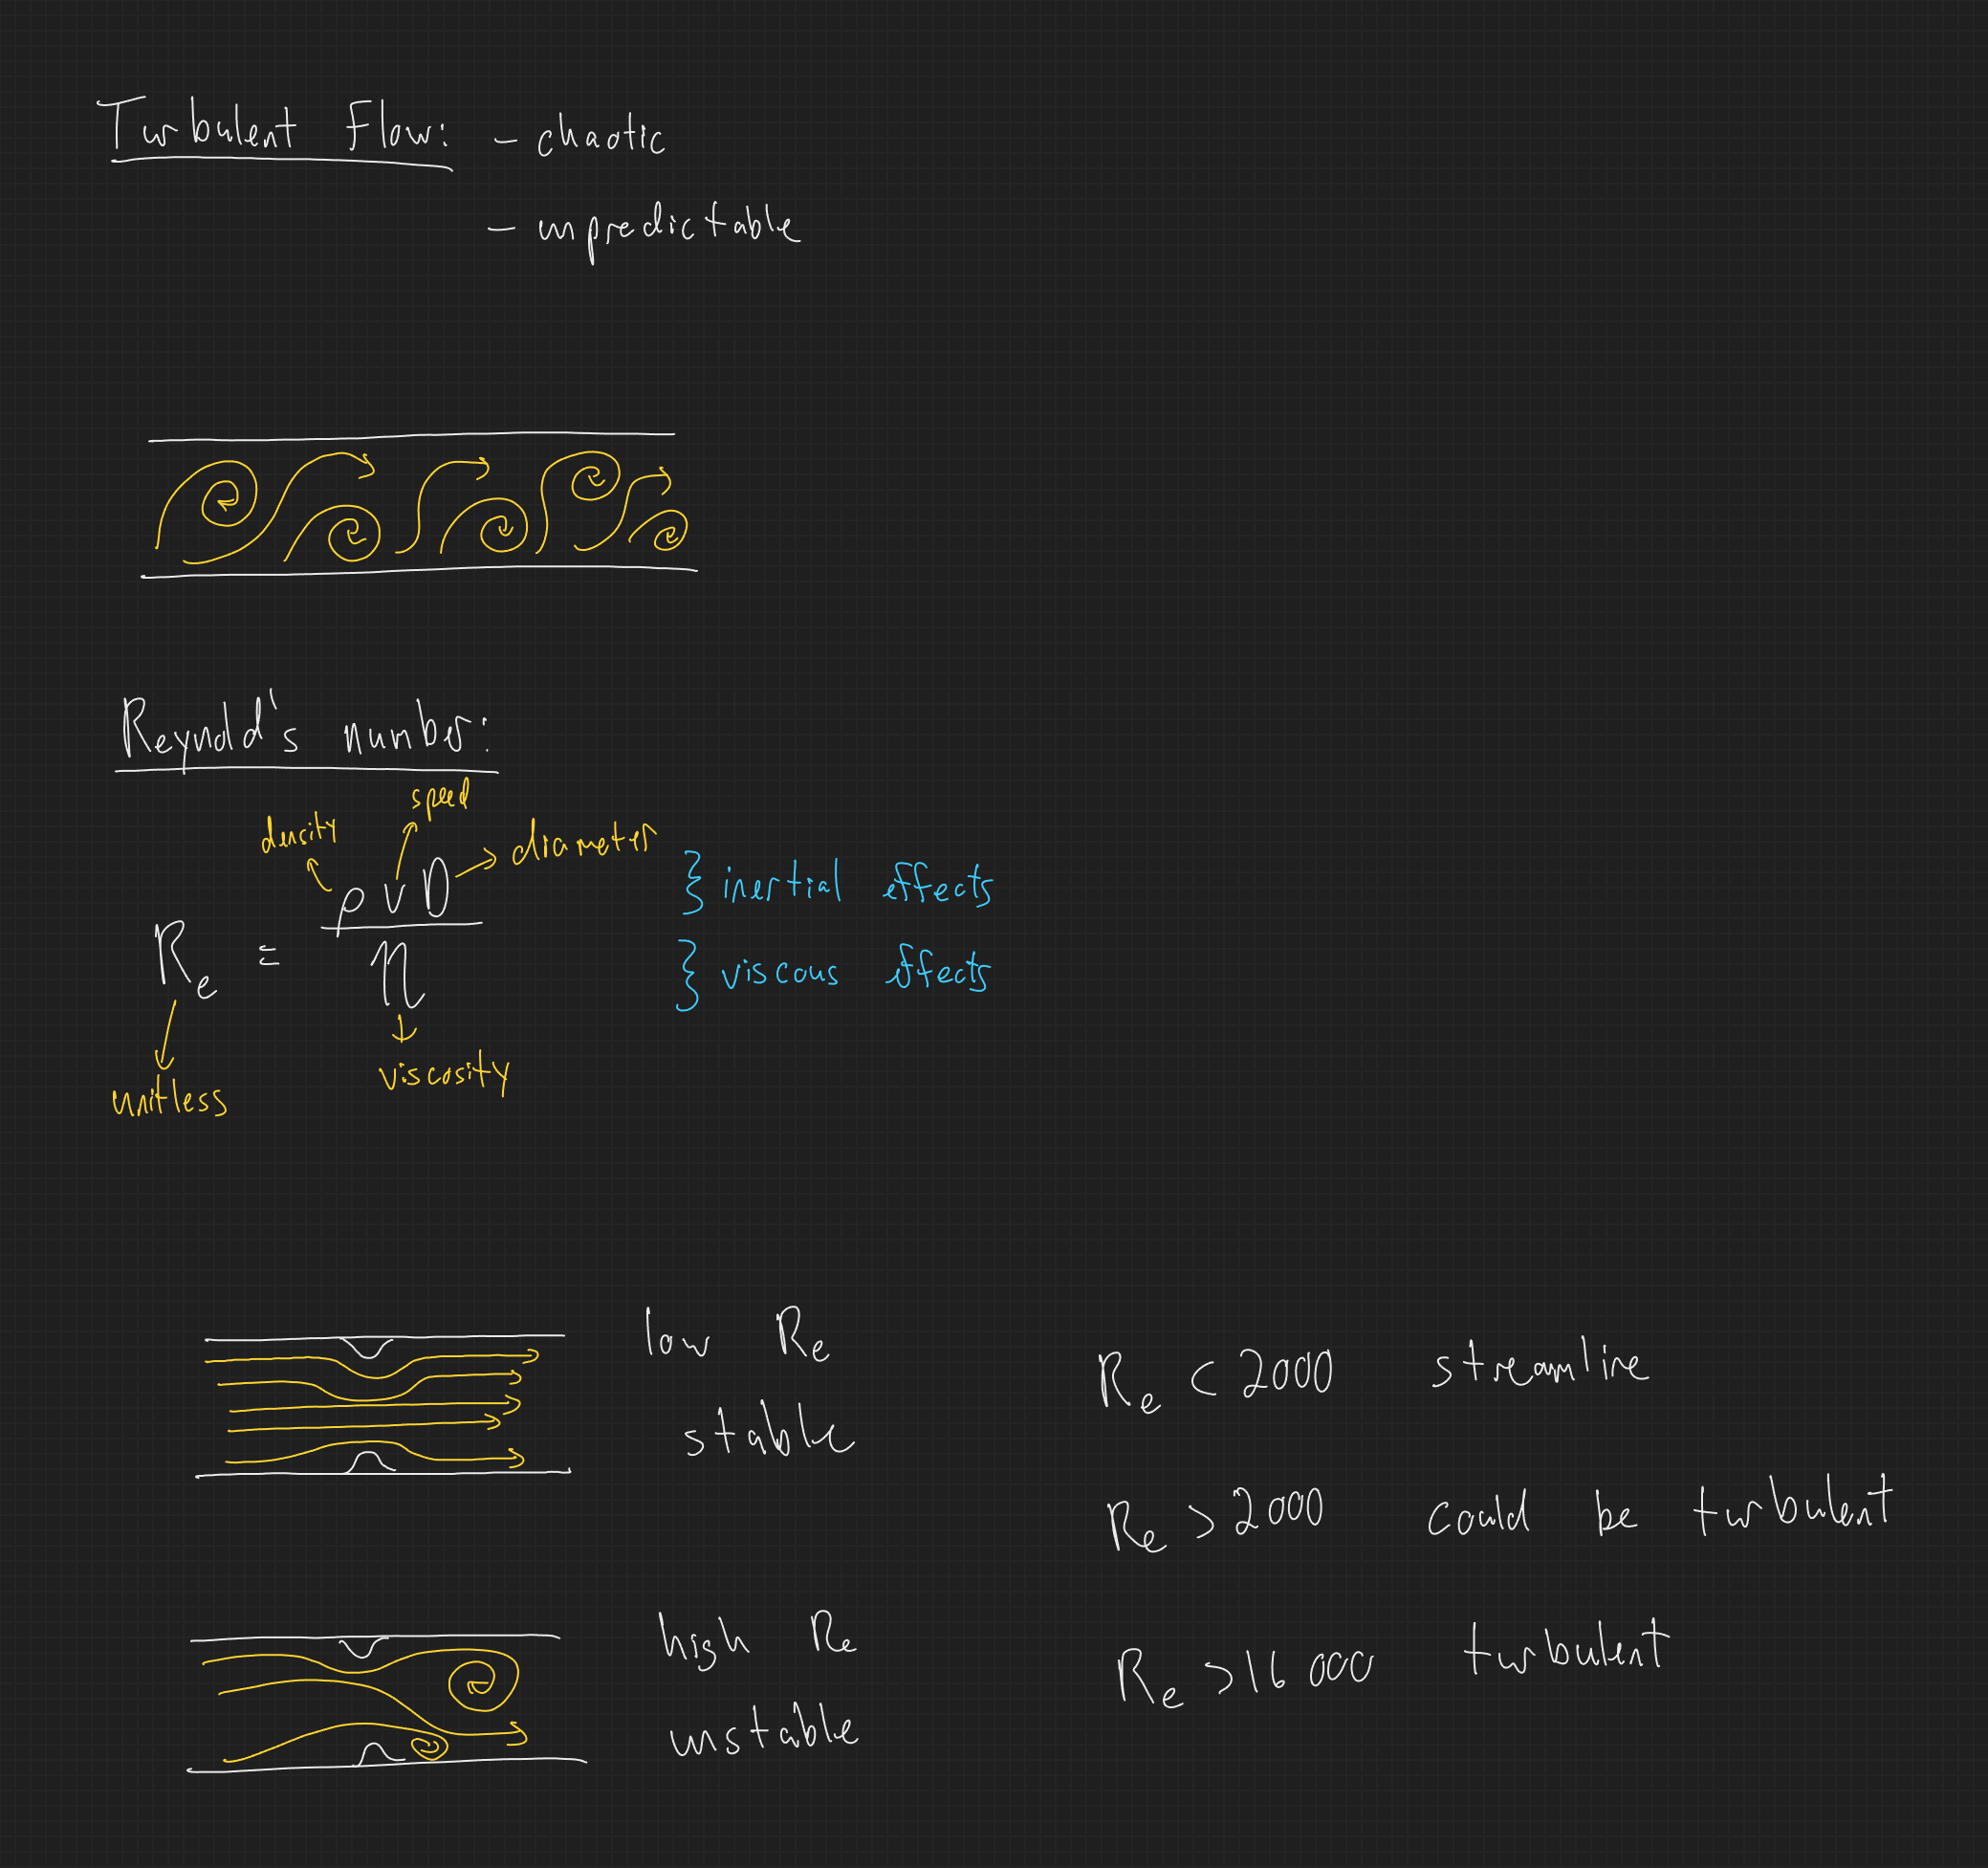 Turbulent Flow: - chaotic
- unpredictable
Reynold's number:
speed
density
diameter
Re = ρvD / η
} inertial effects
} viscous effects
viscosity
unitless
low Re
stable
Re < 2000 streamline
Re > 2000 could be turbulent
high Re
unstable
Re > 16 000 turbulent